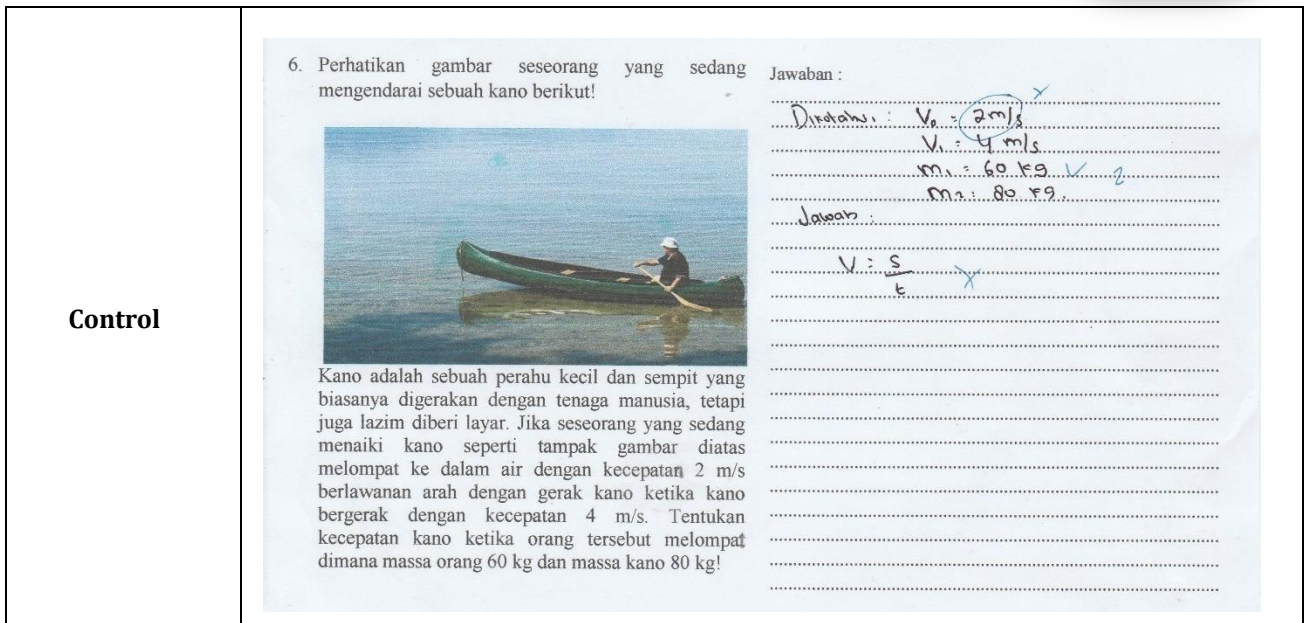 Control
6. Perhatikan gambar seseorang yang sedang
mengendarai sebuah kano berikut!
Kano adalah sebuah perahu kecil dan sempit yang
biasanya digerakan dengan tenaga manusia, tetapi
juga lazim diberi layar. Jika seseorang yang sedang
menaiki kano seperti tampak gambar diatas
melompat ke dalam air dengan kecepatan 2 m/s
berlawanan arah dengan gerak kano ketika kano
bergerak dengan kecepatan 4 m/s. Tentukan
kecepatan kano ketika orang tersebut melompat
dimana massa orang 60 kg dan massa kano 80 kg!
Jawaban :
V₀ : 2 m/s
V₁ : 4 m/s
m₁ : 60 kg
m₂ : 80 kg.
Jawab :
V : s
t